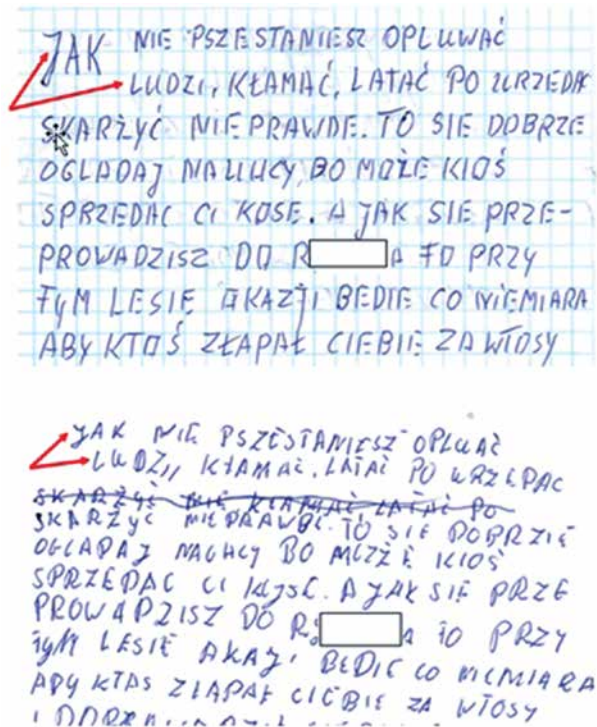 JAK NIE PSZESTANIESZ OPLUWAĆ
LUDZI, KŁAMAĆ, LATAĆ PO URZEDA
SKARŻYĆ NIEPRAWDE. TO SIE DOBRZE
OGLADAJ NA ULICY, BO MOŻE KIOŚ
SPRZEDAC CI KOSE. A JAK SIE PRZE-
PROWADZISZ DO R A TO PRZY
TYM LESIE OKAZJI BEDIE CO NIEMIARA
ABY KTOŚ ZŁAPAŁ CIEBIE ZA WŁOSY
JAK NIE PSZESTANIESZ OPLUAĆ
LUDZI, KŁAMAĆ, LATAĆ PO URZEPAC
SKARŻYĆ NIE KŁAMAĆ LATAĆ PO
SKARŻYĆ NIEPRAWDE. TO SIE DOBRZIE
OGLADAJ NA BO KIOŚ
SPRZEDAC CI A JAK SIE PRZE
PROWADZISZ DO R A TO PRZY
TYM LESIE BEDIE CO NIEMIARA
ABY KTOS ZLAPAŁ CIEBIE ZA WŁOSY
I